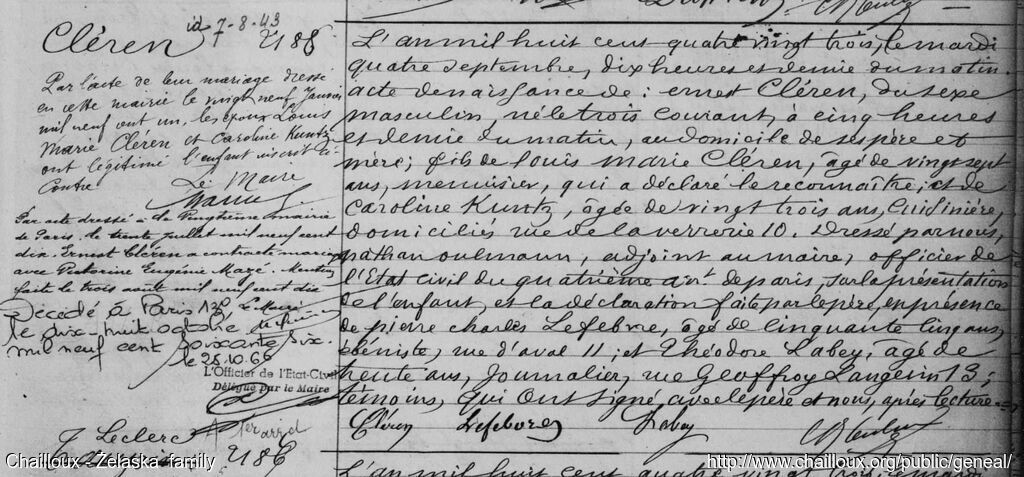 Cléren
id 7-8-43
2186
Par l'acte de leur mariage dressé
en cette mairie le vingt neuf Janvier
mil neuf cent un, les époux Louis
Marie Cléren et Caroline Kuntz
ont légitimé l'enfant inscrit ci-
Contre
Le Maire
Par acte dressé à la mairie
de Paris, le trente juillet mil neuf cent
dix. Ernest Cléren a contracté mariage
avec Eugénie Mazé. Mention
faite le trois août mil neuf cent dix
Décédé à Paris 13e
le dix-huit octobre
mil neuf cent soixante six.
le 25.10.66
L'Officier de l'Etat-Civil
Délégué par le Maire
J Leclerc
2186
L'an mil huit cent quatre vingt trois, le mardi
quatre septembre, dix heures et demie du matin.
acte de naissance de : ernest Cléren, du sexe
masculin, né le trois courant, à cinq heures
et demie du matin, au domicile de ses père et
mère ; fils de louis marie Cléren, âgé de vingt sept
ans, menuisier, qui a déclaré le reconnaître ; et de
Caroline Kuntz, âgée de vingt trois ans, Cuisinière,
domiciliés rue de la verrerie 10. Dressé par nous,
nathan oulmann, adjoint au maire, officier de
l'Etat civil du quatrième arrt. de paris, sur la présentation
de l'enfant, et la déclaration faite par le père, en présence
de pierre charles Lefebvre, âgé de Cinquante Cinq ans,
ébéniste, rue d'aval 11 ; et Théodore Labey, âgé de
trente ans, Journalier, rue Geoffroy Langevin 13 ;
témoins, qui ont signé, avec le père et nous, après lecture.
Cléren Lefebvre Labey
L'an mil huit cent quatre vingt trois, le mardi
Chailloux - Zelaska family
http://www.chailloux.org/public/geneal/